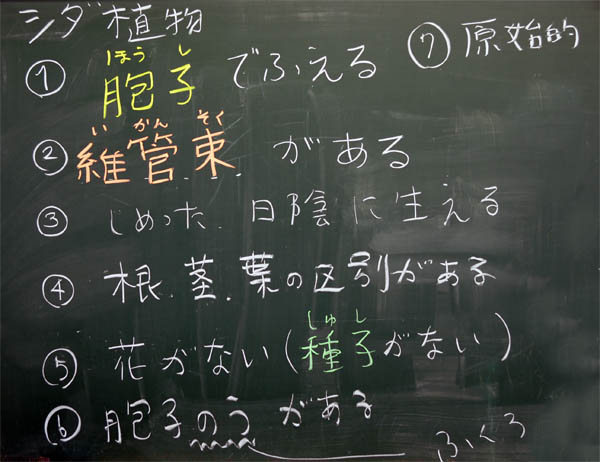 シダ植物
ほう し
① 胞子でふえる
い かん そく
② 維管束がある
③ じめった、日陰に生える
④ 根、茎、葉の区別がある
しゅ し
⑤ 花がない(種子がない)
⑥ 胞子のうがある
ふくろ
⑦ 原始的